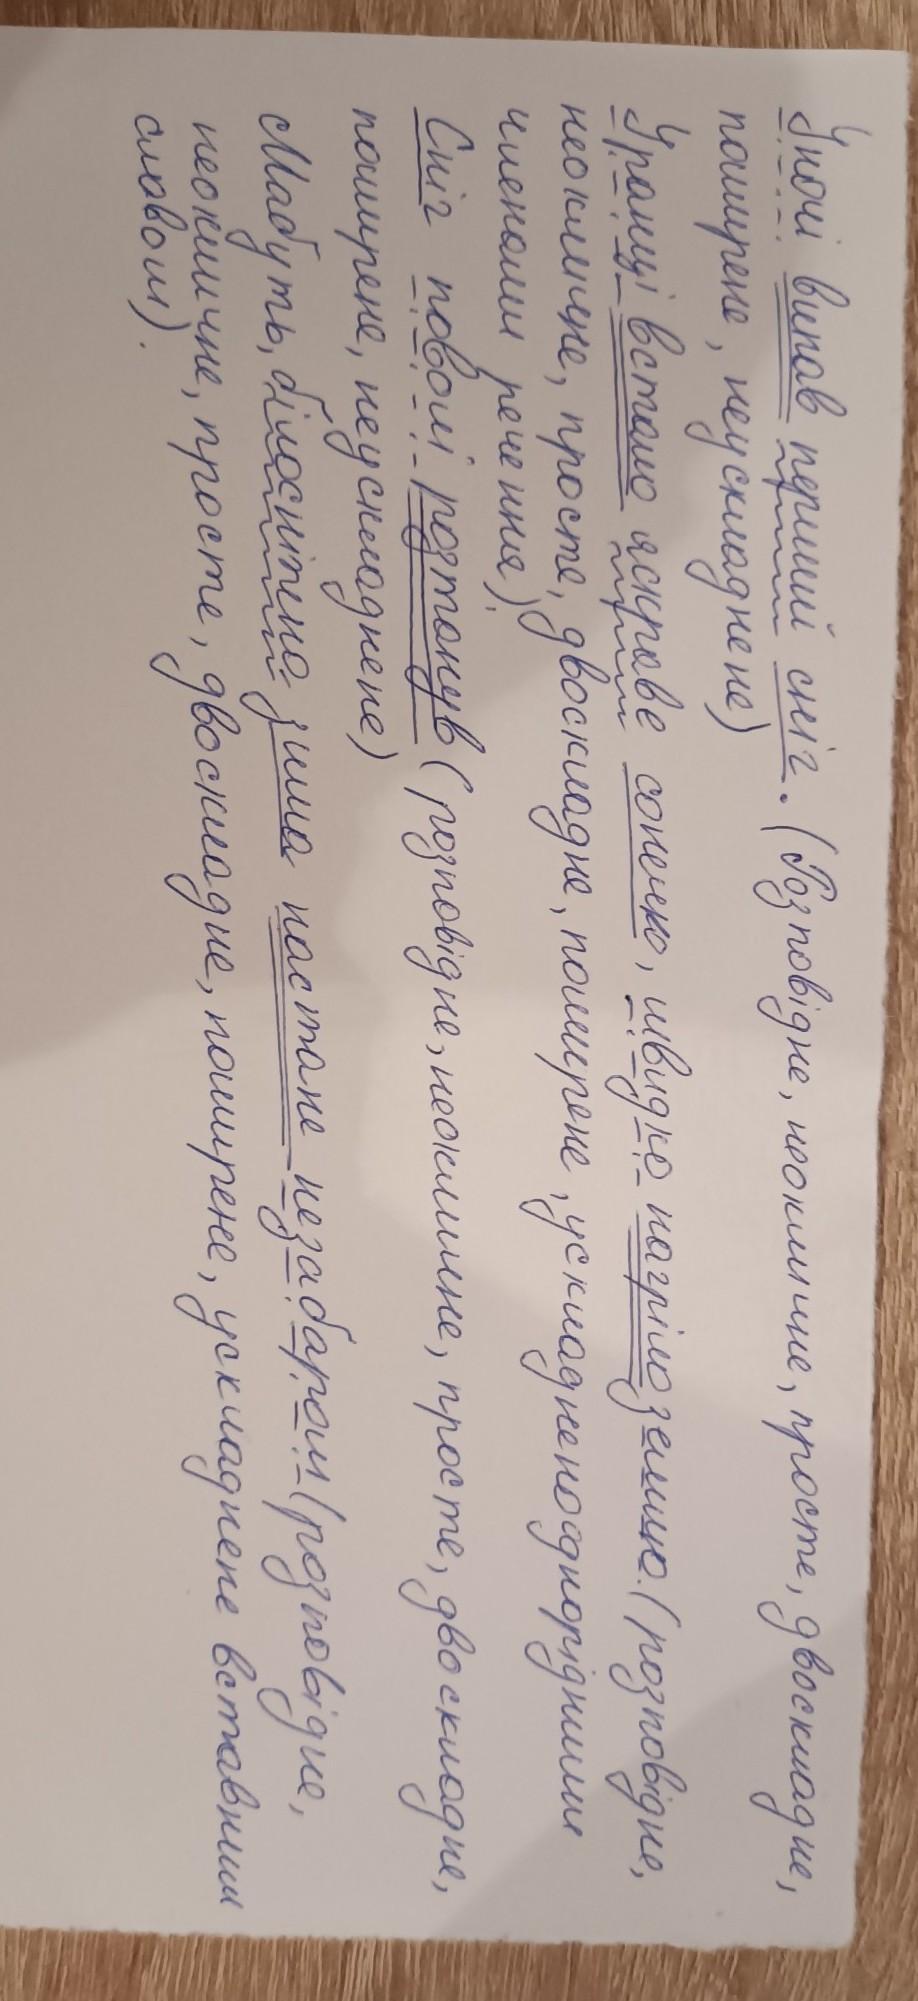 Уночі випав перший сніг. (Розповідне, неокличне, просте, двоскладне,
поширене, неускладнене)
Уранці встало яскраве сонечко, швидко нагріло землю. (розповідне,
неокличне, просте, двоскладне, поширене, ускладнено однорідними
членами речення).
Сніг поволі розтонув (розповідне, неокличне, просте, двоскладне,
поширене, неускладнене)
Мабуть, білосніжна зима настане незабаром (розповідне,
неокличне, просте, двоскладне, поширене, ускладнене вставним
словом).